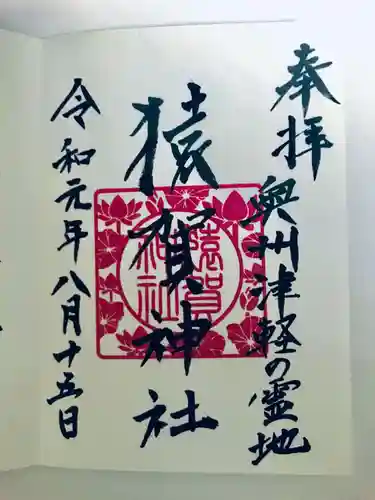 奉拝
奥州津軽の霊地
猿賀神社
令和元年八月十五日
猿賀
神社